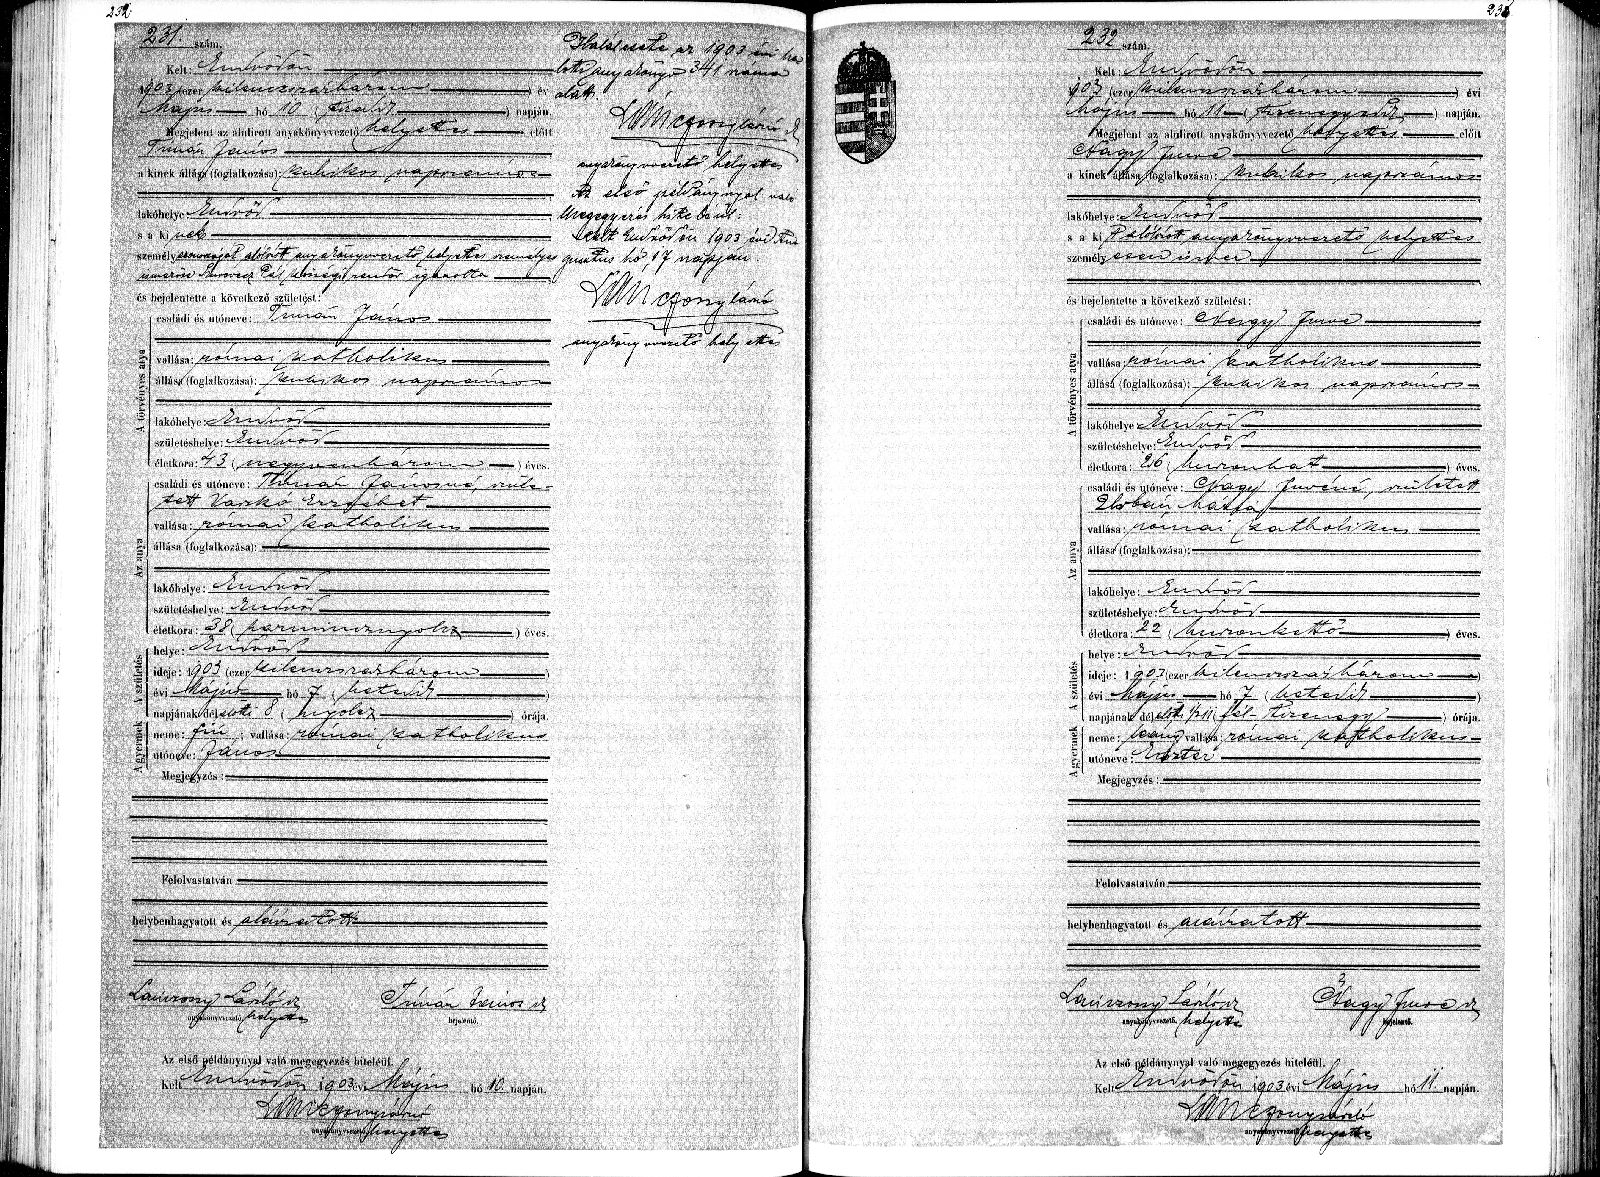 232.
231. szám.
Kelt: Endrődön
1903 (ezer kilenczszázhárom) év
Május hó 10 (tizedik) napján.
Megjelent az alulirott anyakönyvvezető helyettes előtt
Timár János
a kinek állása (foglalkozása): kubikos napszámos
lakóhelye: Endrőd
s a ki nek
személyazonosságát alólirott anyakönyvvezető helyettes személyes
ismerőse Pál községi rendőr igazolta
és bejelentette a következő születést:
A törvényes atya
családi és utóneve: Timár János
vallása: római katholikus
állása (foglalkozása): kubikos napszámos
lakóhelye: Endrőd
születéshelye: Endrőd
életkora: 43 (negyvenhárom) éves.
Az anya
családi és utóneve: Timár Jánosné, szüle-
tett Varkó Erzsébet
vallása: római katholikus
állása (foglalkozása):
lakóhelye: Endrőd
születéshelye: Endrőd
életkora: 38 (harmincznyolcz) éves.
A születés
helye: Endrőd
ideje: 1903 (ezer kilenczszázhárom)
évi Május hó 7 (hetedik)
napjának délelőtti 8 (nyolcz) órája.
A gyermek
neme: fiú; vallása: római katholikus
utóneve: János
Megjegyzés:
Felolvastatván
helybenhagyatott és aláíratott
Lánczony László sk Timár János sk
anyakönyvvezető. helyettes bejelentő.
Az első példánynyal való megegyezés hiteléül.
Kelt Endrődön 1903 évi Május hó 10. napján.
Lánczony László
anyakönyvvezető helyettes
Halálesete az 1903 évi ha
lotti anyakönyv 341 száma
alatt.
Lánczony László sk
anyakönyvvezető helyettes
Az első példánynyal való
megegyezés hiteléül:
Kelt Endrődön 1903 évi Au
gusztus hó 17 napján.
Lánczony László
anyakönyvvezető helyettes
232 szám.
Kelt: Endrődön
1903 (ezer kilenczszázhárom) évi
Május hó 11 (tizenegyedik) napján.
Megjelent az alulirott anyakönyvvezető helyettes előtt
Nagy Imre
a kinek állása (foglalkozása): kubikos napszámos
lakóhelye: Endrőd
s a ki t alólirott anyakönyvvezető helyettes
személyesen ismer
és bejelentette a következő születést:
A törvényes atya
családi és utóneve: Nagy Imre
vallása: római katholikus
állása (foglalkozása): kubikos napszámos
lakóhelye: Endrőd
születéshelye: Endrőd
életkora: 26 (huszonhat) éves.
Az anya
családi és utóneve: Nagy Imréné, született
Mária
vallása: római katholikus
állása (foglalkozása):
lakóhelye: Endrőd
születéshelye: Endrőd
életkora: 22 (huszonkettő) éves.
A születés
helye: Endrőd
ideje: 1903 (ezer kilenczszázhárom)
évi Május hó 7 (hetedik)
napjának délelőtt 1/2 11 (fél-tizenegy) órája.
A gyermek
neme: leány; vallása: római katholikus
utóneve: Eszter
Megjegyzés:
Felolvastatván
helybenhagyatott és aláíratott
Lánczony László sk Nagy Imre sk
anyakönyvvezető. helyettes bejelentő.
Az első példánynyal való megegyezés hiteléül.
Kelt Endrődön 1903 évi Május hó 11. napján.
Lánczony László
anyakönyvvezető helyettes